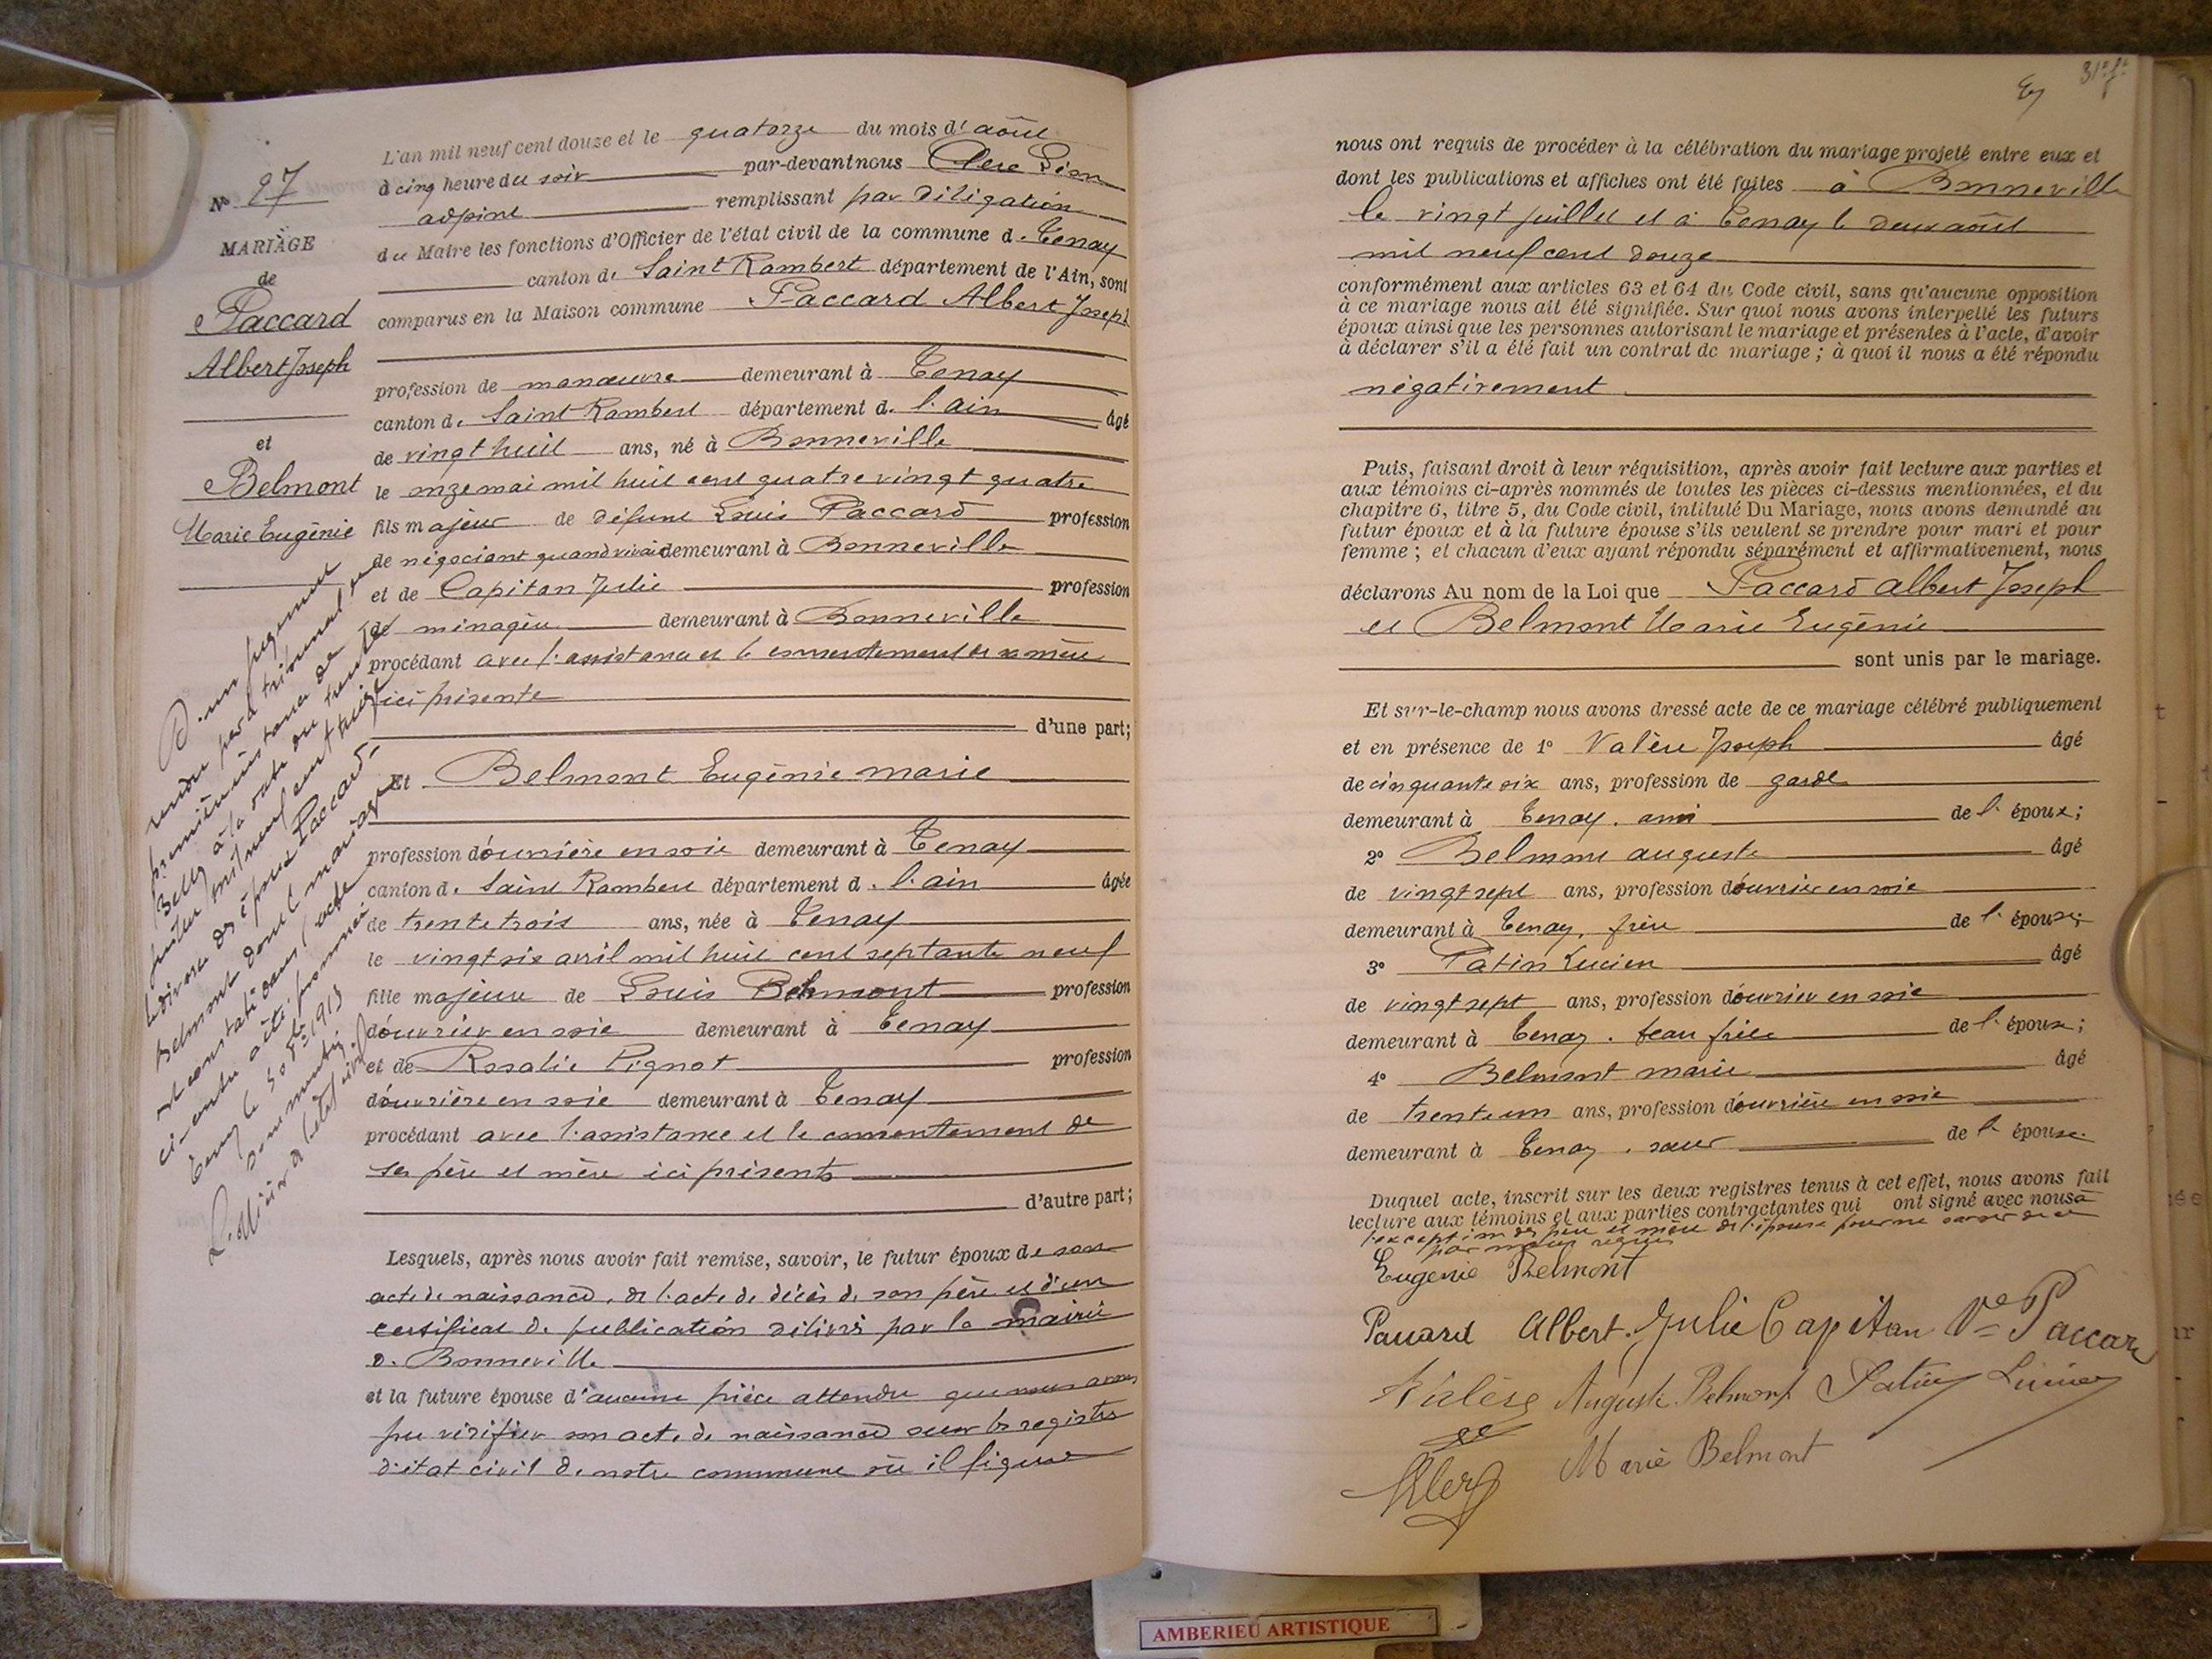 L'an mil neuf cent douze et le quatorze du mois d'août
à cinq heure du soir par-devant nous Clerc Léon
adjoint remplissant par déligation
du Maire les fonctions d'Officier de l'état civil de la commune d. Tenay
canton de Saint Rambert département de l'Ain, sont
comparus en la Maison commune Paccard Albert Joseph
profession de manœuvre demeurant à Tenay
canton de Saint Rambert département d. l'ain âgé
de vingt huit ans, né à Bonneville
le onze mai mil huit cent quatre vingt quatre
fils majeur de défunt Louis Paccard profession
de négociant quand vivait demeurant à Bonneville
et de Capitan Julie profession
de ménagère demeurant à Bonneville
procédant avec l'assistance et le consentement de sa mère
ici présente
d'une part;
Et Belmont Eugénie marie
profession d'ouvrière en soie demeurant à Tenay
canton d. Saint Rambert département d. l'ain âgée
de trente trois ans, née à Tenay
le vingt six avril mil huit cent septante neuf
fille majeure de Louis Belmont profession
d'ouvrier en soie demeurant à Tenay
et de Rosalie Pignot profession
d'ouvrière en soie demeurant à Tenay
procédant avec l'assistance et le consentement de
ses père et mère ici présents
d'autre part;
Lesquels, après nous avoir fait remise, savoir, le futur époux de son
acte de naissance, de l'acte de décès de son père et d'un
certificat de publication délivré par la mairie
d. Bonneville
et la future épouse d'aucune pièce attendu que nous avons
pu vérifier son acte de naissance sur les registres
d'état civil de notre commune où il figure
N° 27
MARIAGE
de
Paccard
Albert Joseph
et
Belmont
Marie Eugénie
D'un jugement
rendu par le tribunal de
première instance de
Belley à la date du trente
juillet mil neuf cent treize
le divorce des époux Paccard-
Belmont dont le mariage
est constaté dans l'acte
ci-contre a été prononcé
Tenay le 30 1913
L'officier de l'état civil
31e ft
nous ont requis de procéder à la célébration du mariage projeté entre eux et
dont les publications et affiches ont été faites à Bonneville
le vingt juillet et à Tenay le deux août
mil neuf cent douze
conformément aux articles 63 et 64 du Code civil, sans qu'aucune opposition
à ce mariage nous ait été signifiée. Sur quoi nous avons interpellé les futurs
époux ainsi que les personnes autorisant le mariage et présentes à l'acte, d'avoir
à déclarer s'il a été fait un contrat de mariage; à quoi il nous a été répondu
négativement
Puis, faisant droit à leur réquisition, après avoir fait lecture aux parties et
aux témoins ci-après nommés de toutes les pièces ci-dessus mentionnées, et du
chapitre 6, titre 5, du Code civil, intitulé Du Mariage, nous avons demandé au
futur époux et à la future épouse s'ils veulent se prendre pour mari et pour
femme; et chacun d'eux ayant répondu séparément et affirmativement, nous
déclarons Au nom de la Loi que Paccard Albert Joseph
et Belmont Marie Eugénie
sont unis par le mariage.
Et sur-le-champ nous avons dressé acte de ce mariage célébré publiquement
et en présence de 1° Valère Joseph âgé
de cinquante six ans, profession de garde
demeurant à Tenay. ami de l' époux;
2° Belmont auguste âgé
de vingt sept ans, profession d'ouvrier en soie
demeurant à Tenay, frère de l' épouse;
3° Patin Lucien âgé
de vingt sept ans, profession d'ouvrier en soie
demeurant à Tenay. beau frère de l' époux;
4° Belmont marie âgé
de trente un ans, profession d'ouvrière en soie
demeurant à Tenay, sœur de l' épouse.
Duquel acte, inscrit sur les deux registres tenus à cet effet, nous avons fait
lecture aux témoins et aux parties contractantes qui ont signé avec nous à
l'exception des père et mère de l'épouse pour ne savoir de ce
par nous requis
Eugénie Belmont
Paccard Albert. Julie Capitan Ve Paccard
Valère Auguste Belmont Patin Lucien
Clerc Marie Belmont
AMBERIEU ARTISTIQUE